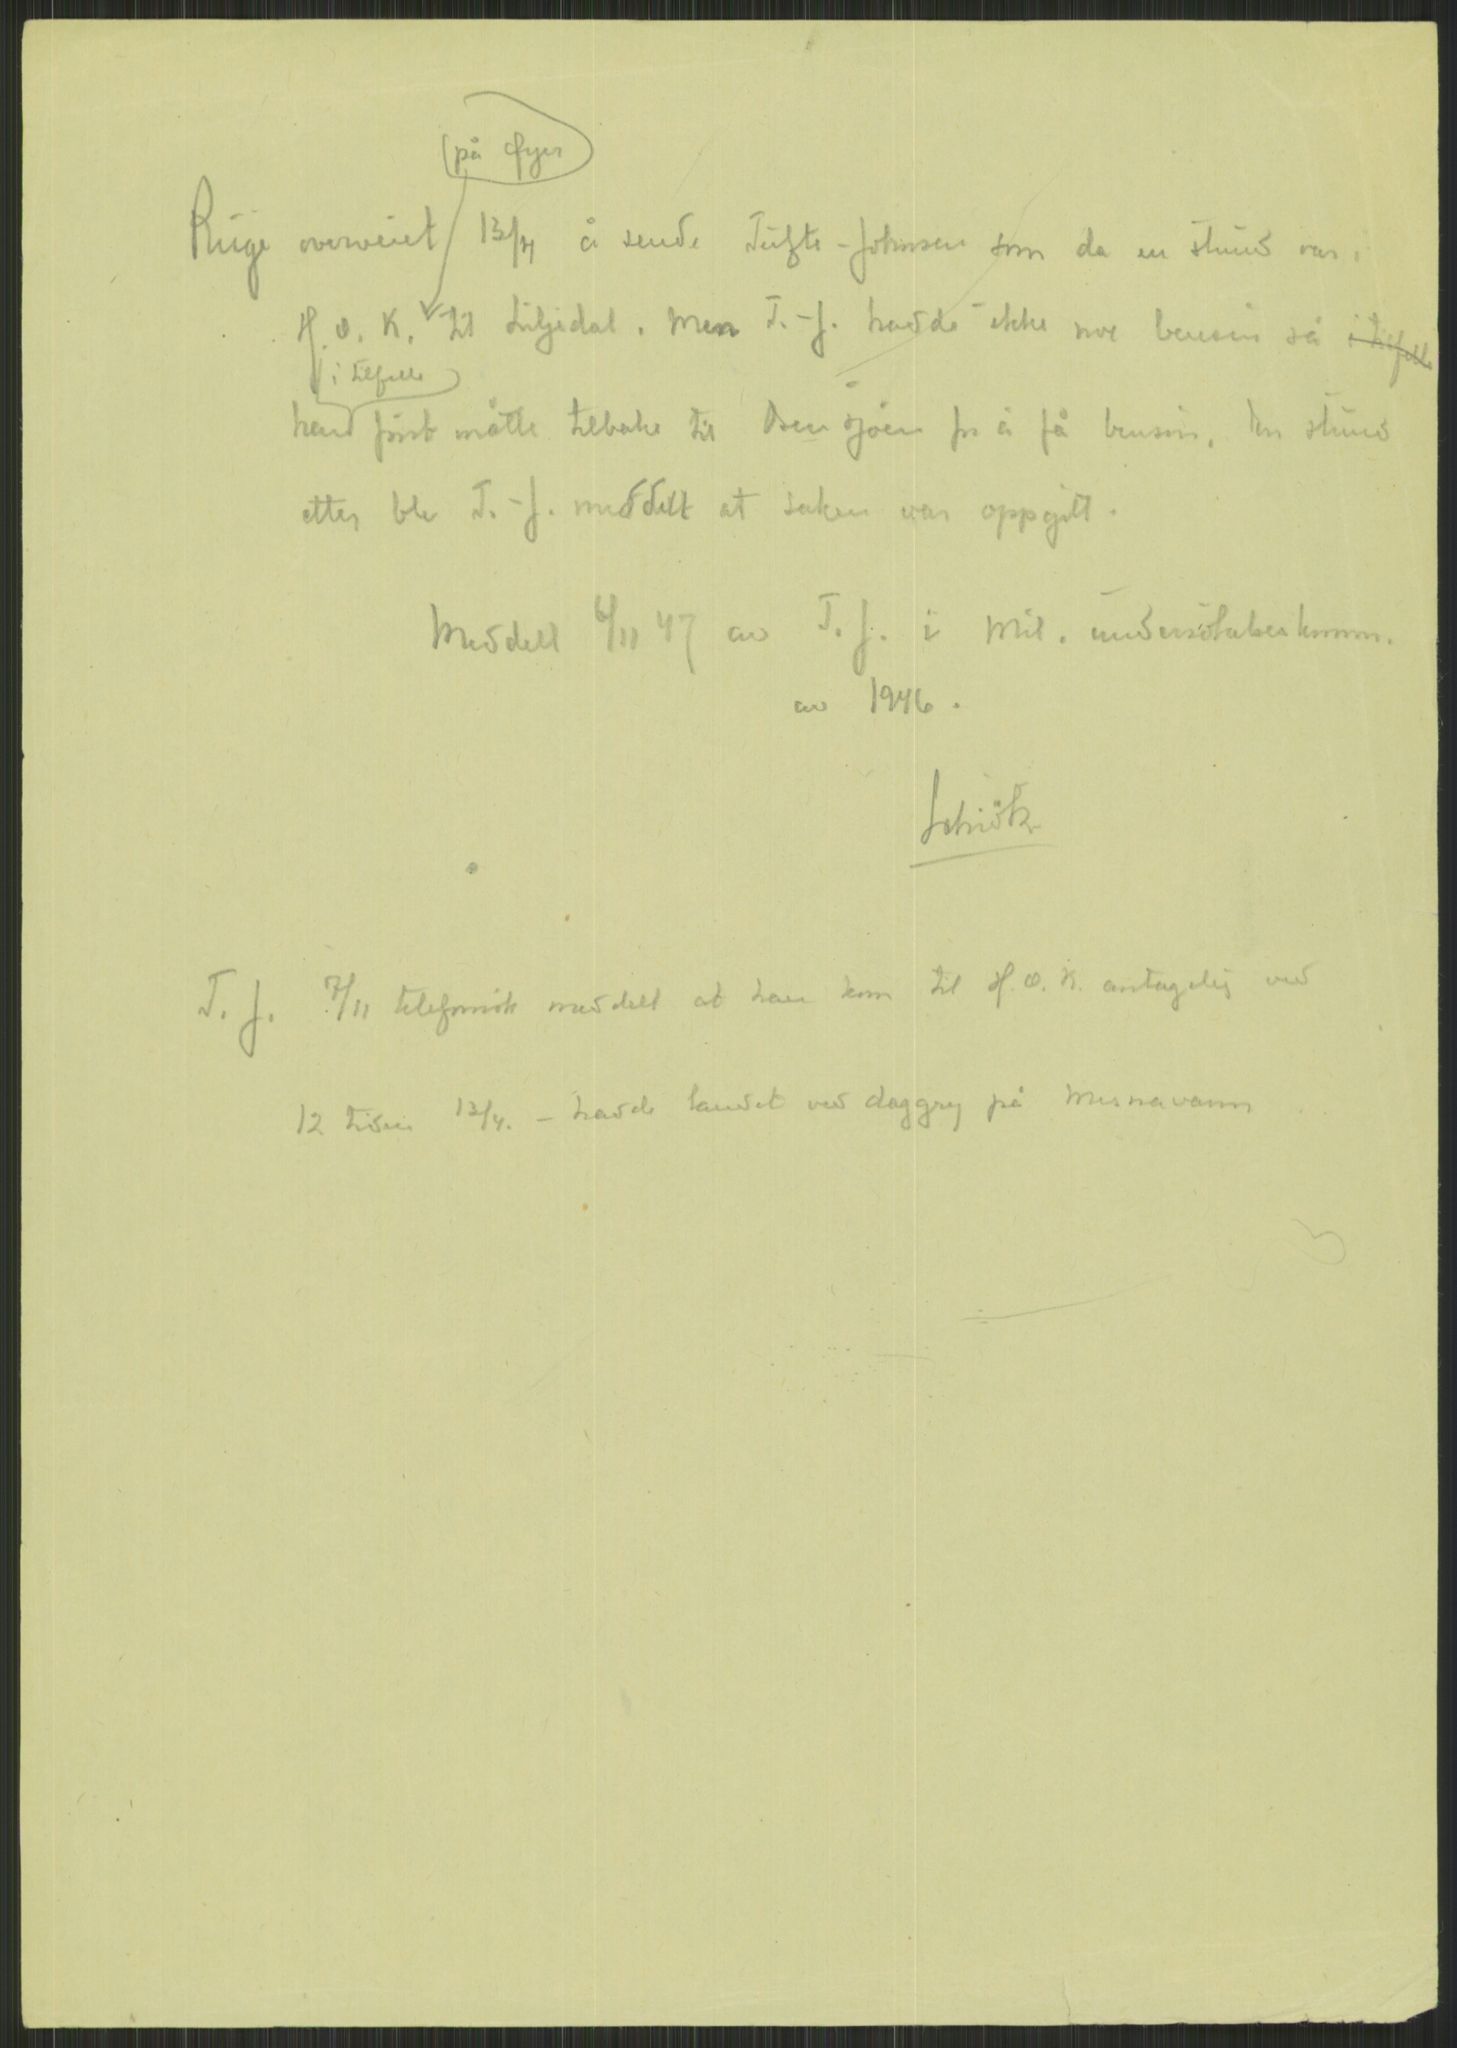 (på Øyer
Ruge overveiet 13/4 å sende Tufte-Johnsen som da en stund var i
H.O.K. til Liljedal. Men T.-J. hadde ikke noe bensin så i tilfelle
i tilfelle
han först måtte tilbake til Osensjöen for å få bensin. En stund
etter ble T.-J. meddelt at saken var oppgitt.
Meddelt 6/11 47 av T.J. i Mil. undersökelseskomm.
av 1946.
Schiötz
T.J. 7/11 telefonisk meddelt at han kom til H.O.K. antagelig ved
12 tiden 13/4. - hadde landet ved daggry på Mesnavann